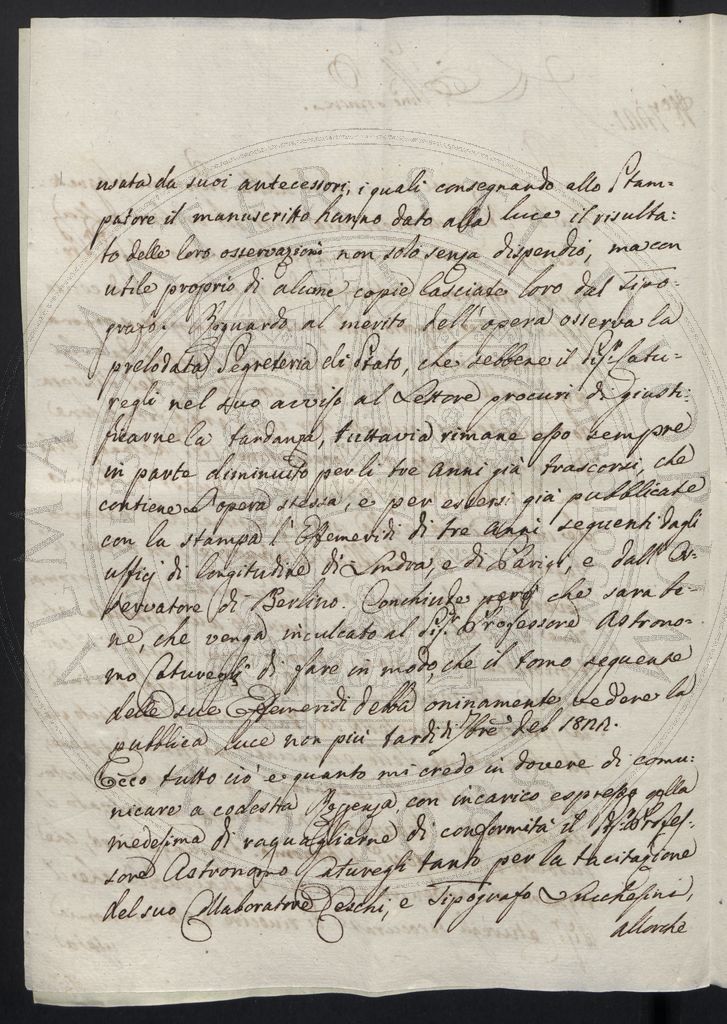 usata da suoi antecessori, i quali consegnando allo Stam=
patore il manuscritto hanno dato alla luce il risulta:
to delle loro osservazioni non solo senza dispendio, ma con
utile proprio di alcune copie lasciate loro dal Tipo-
grafo. Riguardo al merito dell'opera osserva la
prelodata Segreteria di Stato, che sebbene il Sig.r Catu-
regli nel suo avviso al Lettore procuri di giusti:
ficarne la tardanza, tuttavia rimane esso sempre
in parte diminuito per li tre anni già trascorsi, che
contiene l'opera stessa, e per essersi già pubblicate
con la stampa l'Effemeridi di tre anni seguenti dagli
ufficj di longitudine di Londra, e di Parigi, e dall'Os-
servatore di Berlino. Conchiude però che sarà be-
ne, che venga inculcato al Sig.r Professore Astrono-
mo Caturegli di fare in modo, che il tomo seguente
delle sue Effemeridi debba oninamente vedere la
pubblica luce non più tardi di del 1822.
Ecco tutto ciò e quanto mi credo in dovere di comu:
nicare a codesta Reggenza, con incarico espresso alla
medesima di raguagliarne di conformità il Sig.r Profes-
sore Astronomo Caturegli tanto per la tacitazione
del suo Collaboratore Ceschi, e Tipografo Lucchesini,
allorchè